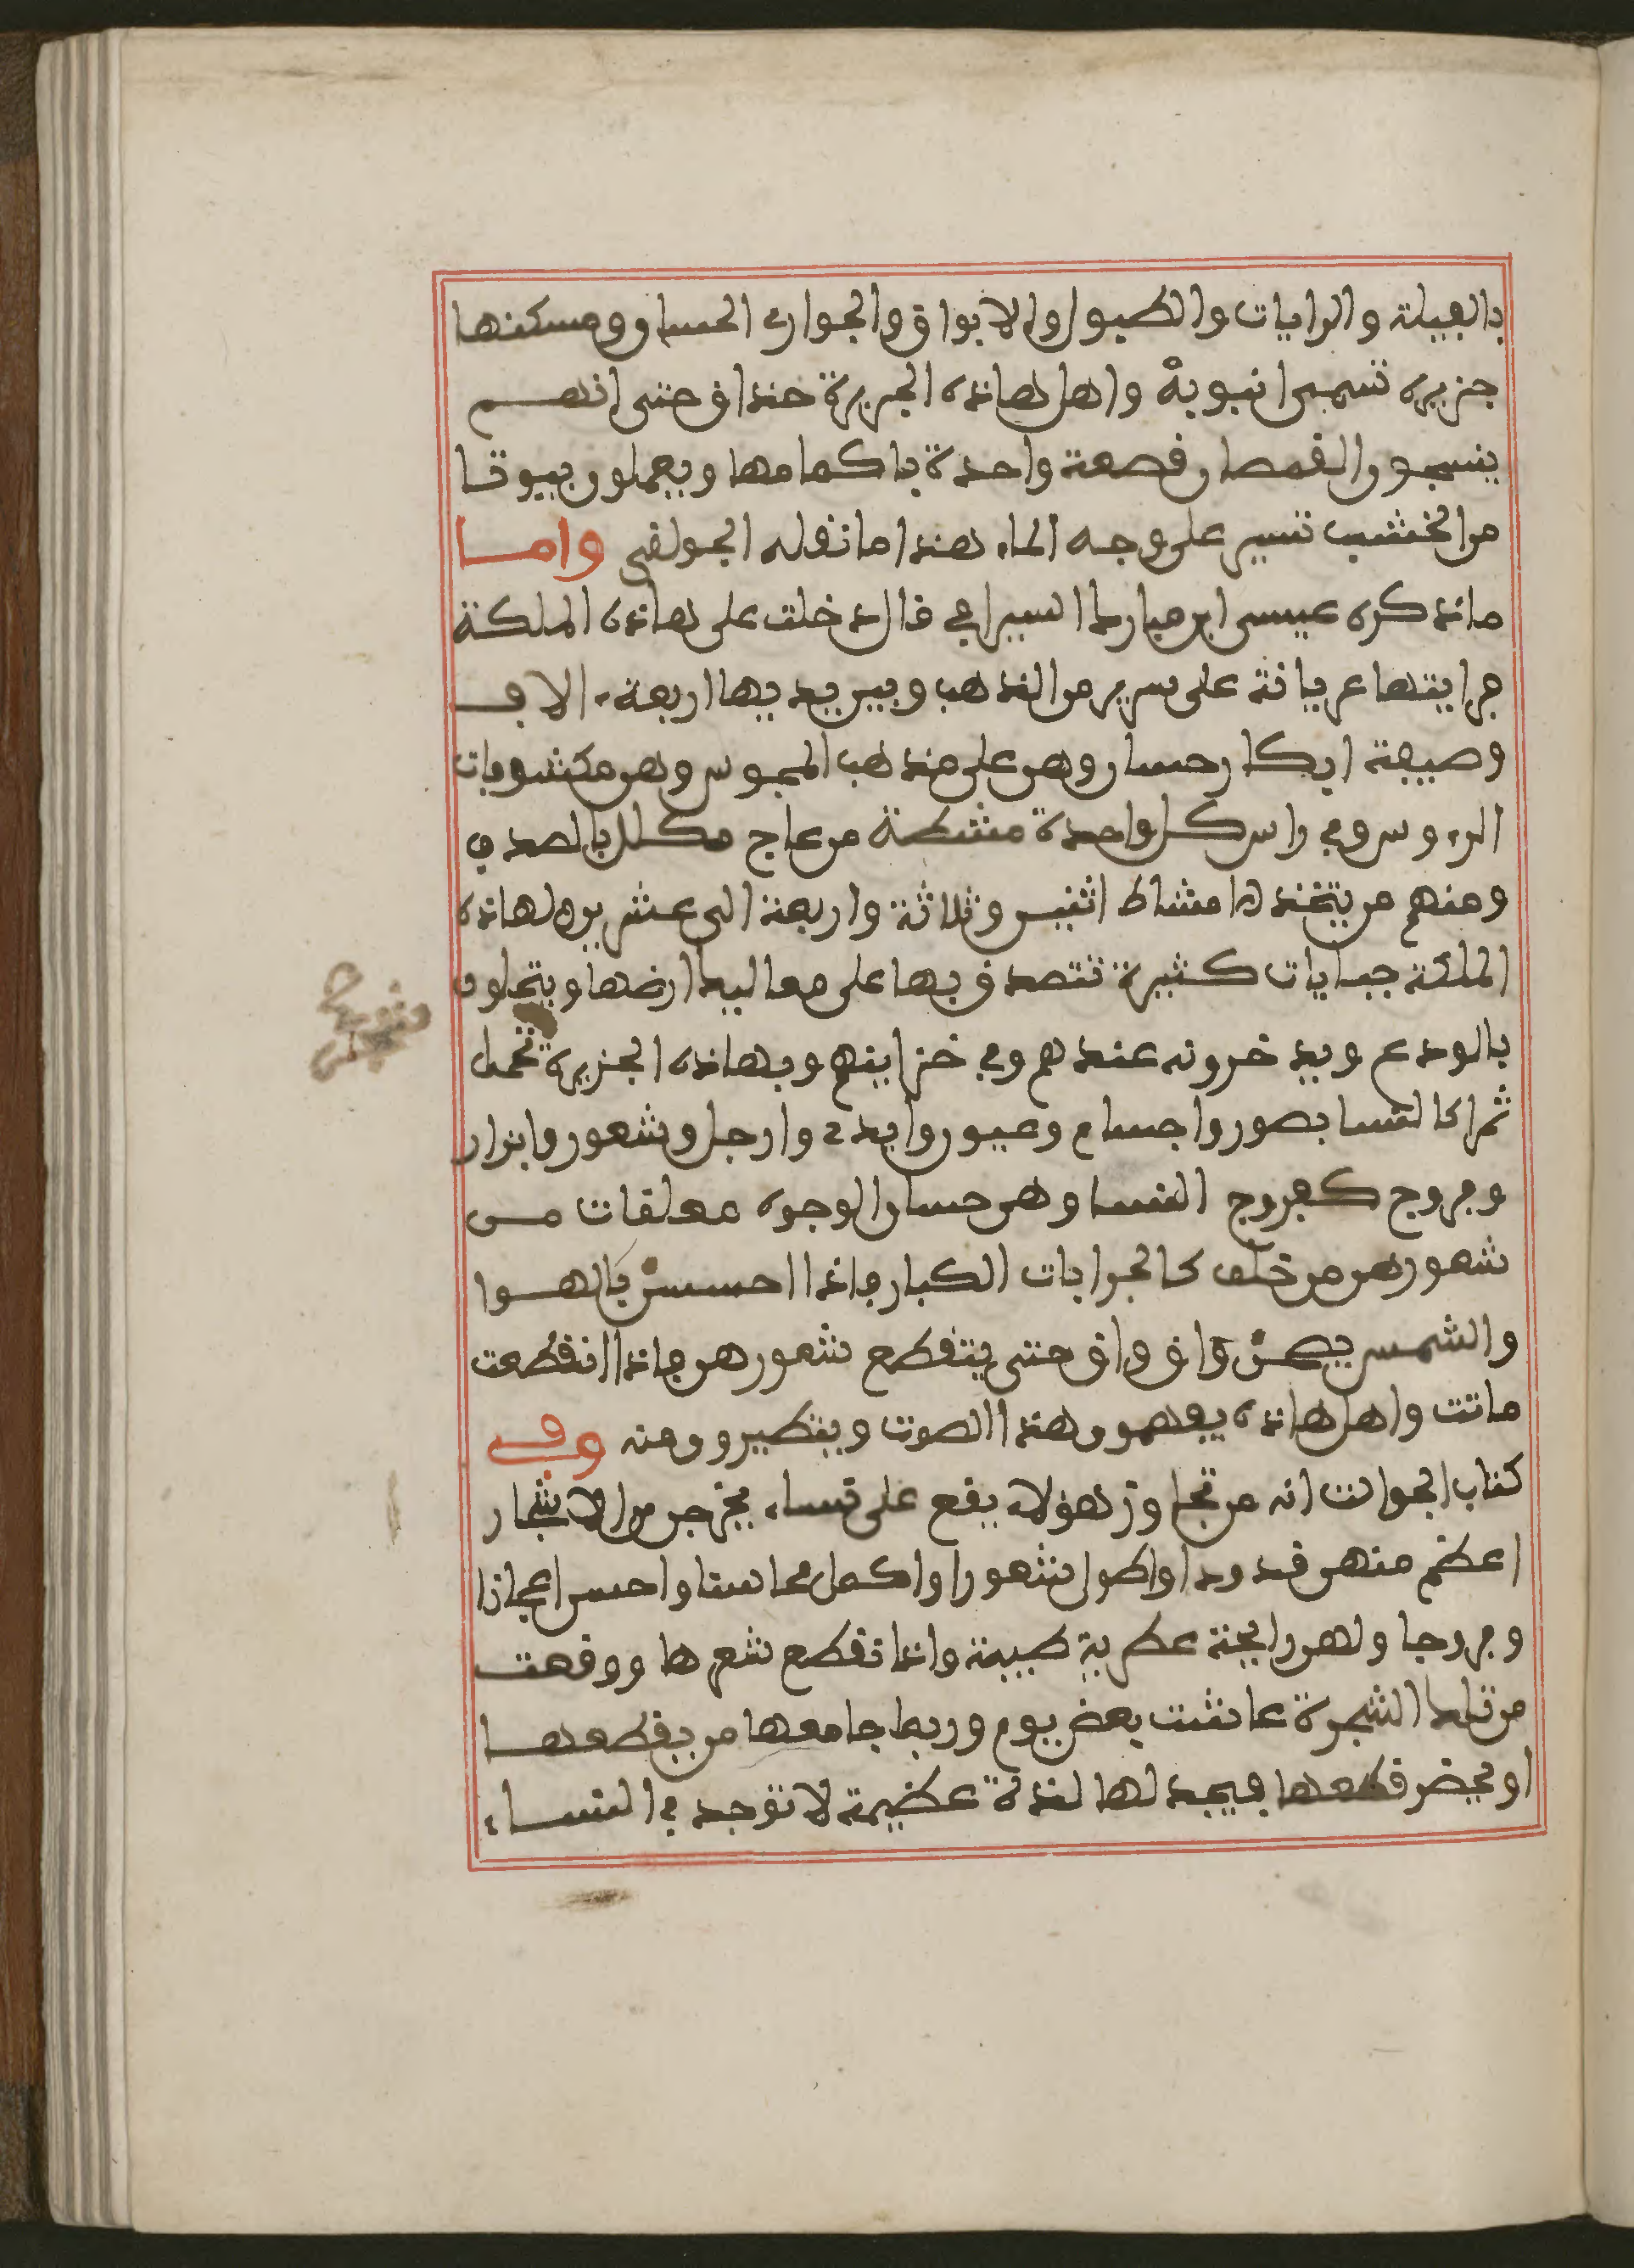 بالفيلة والرايات والطبول والابواق والجواري الحسان ومسكنها
جزيرة تسمى انبوبة واهل هاذه الجزيرة حذاق حتى انهم
ينسجون القمصان قصعة واحدة باكمامها ويعملون بيوتا
من الخشب تسير على وجه الماء هذا ما نقوله الجولقي واما
ما ذكره عيسى ابن مبارك السيرافي قال دخلت على هاذه الملكة
فرايتها عريانة على سرير من الذهب وبين يديها اربعة الاف
وصيفة ابكار حسان وهن على مذهب المجوس وهن مكشوفات
الرءوس وفي راس كل واحدة مشطة من عاج مكلل بالصدف
ومنهم من يتخذ امشاط اثنين وثلاثة واربعة الى عشرين ولهاذه
الملكة جبايات كثيرة تتصدق بها على معاليك ارضها ويتحلون
بالودع ويدخرونه عندهم وفي خزاينهم وبهاذه الجزيرة تحمل
ثمرا كالنسا بصور واجسام وعيون وايدي وارجل وشعور وابزار
وفروج كفروج النسا وهن حسان الوجوه معلقات من
شعورهن من خلف كالجرابات الكبار فاذا احسسن بالهوا
والشمس يصحن واق واق حتى يتقطع شعورهن فاذا انقطعت
ماتت واهل هاذه يفهمون هذا الصوت ويتطيرون منه وفي
كتاب الحوالت انه من تجاوز هؤلاء يقع على نساء يخرجن من الاشجار
اعظم منهن قدودا واطول شعورا واكمل محاسنا واحسن اعجازا
وفروجا ولهن رايحة عطرية طيبة واذا تقطع شعرها ووقعت
من تلك الشجرة عاشت بعض يوم وربما جامعها من يقطعها
او يحضر قطعها فيجد لها لذة عظيمة لا توجد في النساء